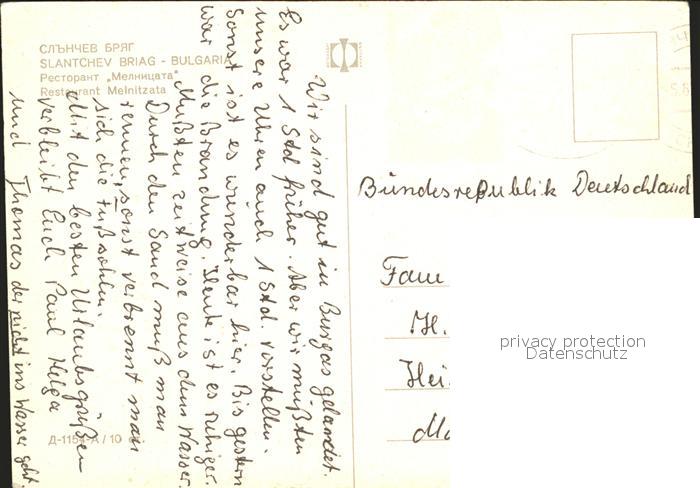 СЛЪНЧЕВ БРЯГ
SLANTCHEV BRIAG - BULGARIA
Ресторант „Мелницата“
Restaurant Melnitzata
Wir sind gut in Burgas gelandet.
Es war 1 Std früher. Aber wir mußten
unsere Uhren auch 1 Std. vorstellen.
Sonst ist es wunderbar hier. Bis gestern
war die Brandung. Heute ist es ruhiger.
Mußten zeitweise aus dem Wasser.
Durch den Sand muß man
rennen, sonst verbrennt man
sich die Fußsohlen.
Mit den besten Urlaubsgrüßen
verbleibt Euch Paul Helga
und Thomas der nicht ins Wasser geht.
Д-1154-А / 10
Bundesrepublik Deutschland
Fam
H.
Hei
privacy protection
Datenschutz